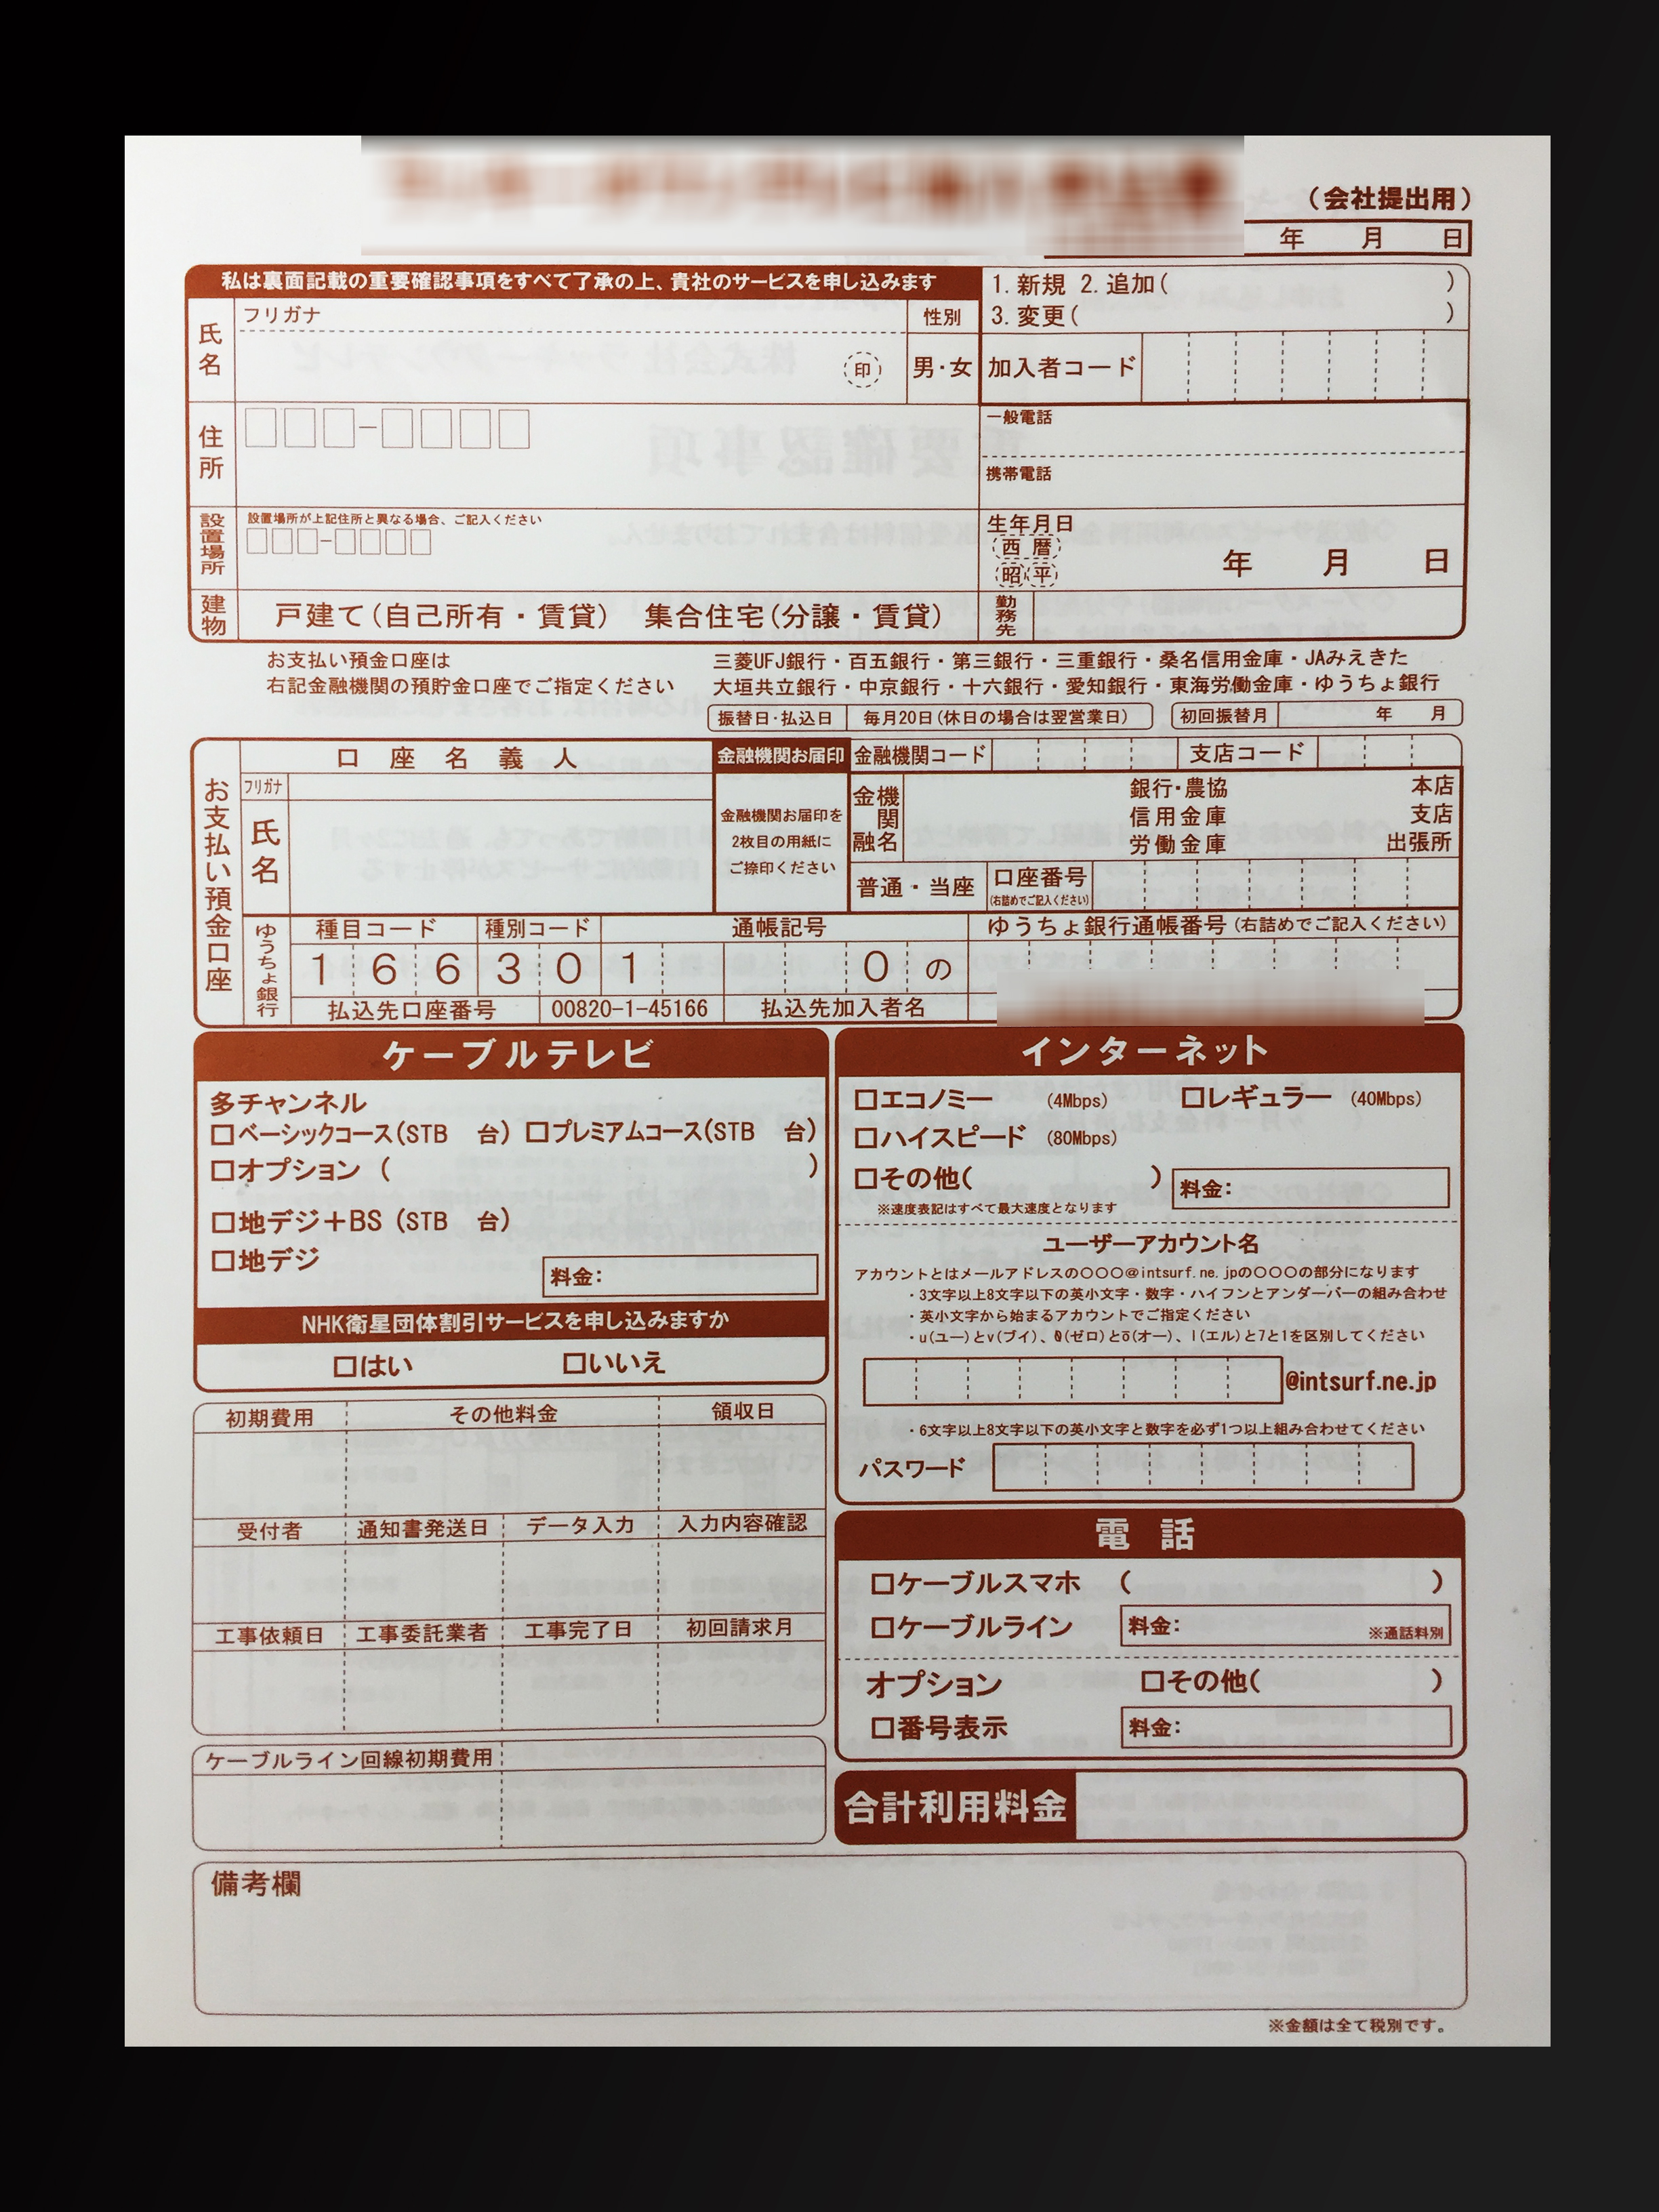 (会社提出用)
年 月 日
私は裏面記載の重要確認事項をすべて了承の上、貴社のサービスを申し込みます
1. 新規 2. 追加( )
3. 変更( )
氏名
フリガナ
性別
印
男・女
加入者コード
住所
一般電話
携帯電話
設置場所
設置場所が上記住所と異なる場合、ご記入ください
生年月日
西暦
昭 平
年 月 日
建物
戸建て(自己所有・賃貸) 集合住宅(分譲・賃貸)
勤務先
お支払い預金口座は
右記金融機関の預貯金口座でご指定ください
三菱UFJ銀行・百五銀行・第三銀行・三重銀行・桑名信用金庫・JAみえきた
大垣共立銀行・中京銀行・十六銀行・愛知銀行・東海労働金庫・ゆうちょ銀行
振替日・払込日 毎月20日(休日の場合は翌営業日) 初回振替月 年 月
お支払い預金口座
口座名義人
金融機関お届印
金融機関コード
支店コード
フリガナ
氏名
金融機関お届印を
2枚目の用紙に
ご捺印ください
金融機関名
銀行・農協 本店
信用金庫 支店
労働金庫 出張所
普通・当座
口座番号
(右詰めでご記入ください)
ゆうちょ銀行
種目コード 種別コード 通帳記号 ゆうちょ銀行通帳番号(右詰めでご記入ください)
1 6 6 3 0 1 0 の
払込先口座番号 00820-1-45166 払込先加入者名
ケーブルテレビ
多チャンネル
□ベーシックコース(STB 台) □プレミアムコース(STB 台)
□オプション ( )
□地デジ+BS (STB 台)
□地デジ
料金:
NHK衛星団体割引サービスを申し込みますか
□はい □いいえ
初期費用 その他料金 領収日
受付者 通知書発送日 データ入力 入力内容確認
工事依頼日 工事委託業者 工事完了日 初回請求月
ケーブルライン回線初期費用
インターネット
□エコノミー (4Mbps) □レギュラー (40Mbps)
□ハイスピード (80Mbps)
□その他( ) 料金:
※速度表記はすべて最大速度となります
ユーザーアカウント名
アカウントとはメールアドレスの〇〇〇@intsurf.ne.jpの〇〇〇の部分になります
・3文字以上8文字以下の英小文字・数字・ハイフンとアンダーバーの組み合わせ
・英小文字から始まるアカウントでご指定ください
・u(ユー)とv(ブイ)、0(ゼロ)とo(オー)、l(エル)と7と1を区別してください
@intsurf.ne.jp
・6文字以上8文字以下の英小文字と数字を必ず1つ以上組み合わせてください
パスワード
電話
□ケーブルスマホ ( )
□ケーブルライン 料金: ※通話料別
オプション □その他( )
□番号表示 料金:
合計利用料金
備考欄
※金額は全て税別です。